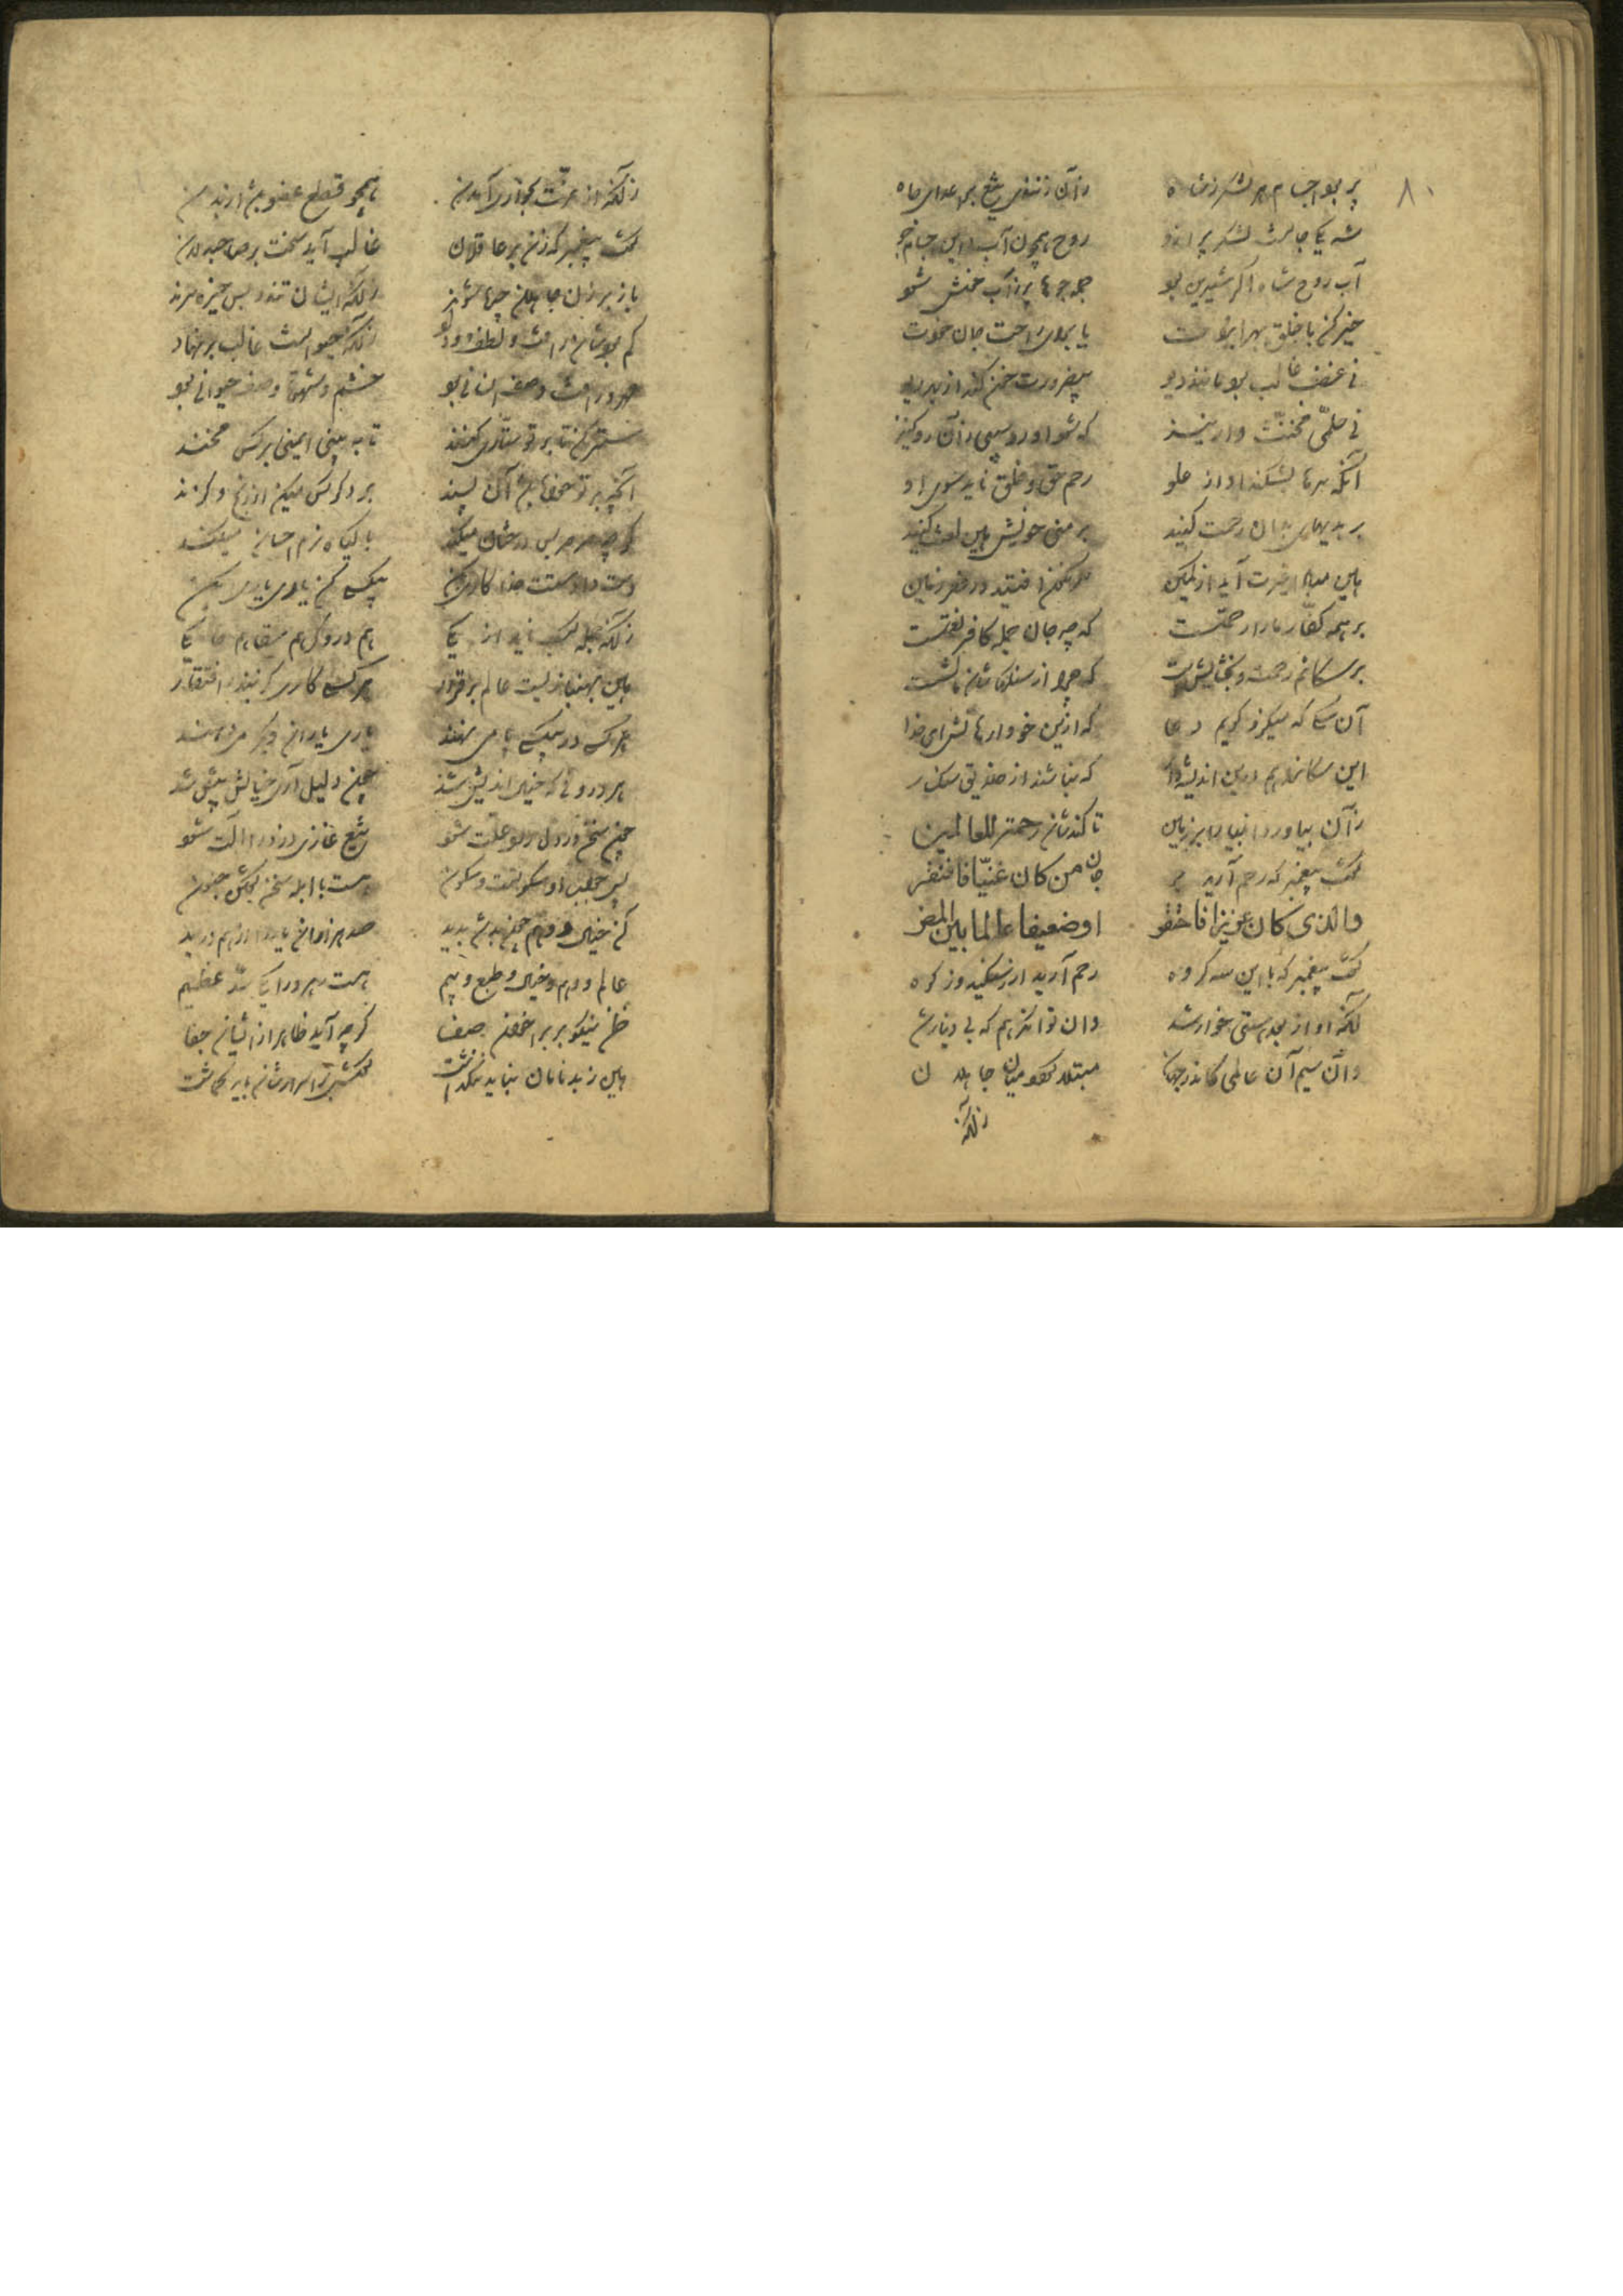 ۸۰
پر بود اجسام هر لشکر ز شاه   زآن زنندی تیغ بر اعدای جاه
شه یکی جانست لشکر پر ازو   روح همچون آب و این اجسام جو
آب روح شاه اگر شیرین بود   جمله جوها پر ز آب خوش شود
خیر کن با خلق بهر ایزدت   یا برای راحت جان خودت
نی غضب غالب بود مانند دیو   بیضرورت خون کند از بهر ریو
نی حلمی مخنث وار نیز   که شود او روسپی زآن رو کنیز
آنکه سرها بشکند او از علو   رحم حق و خلق ناید سوی او
بر بدیهای بدان رحمت کنید   بر منی خویش بین لعنت کنید
هین مبادا غیرت آید از کمین   سرنگون افتید در قعر زمین
بر همه کفار ما را رحمتست   که چه جان جمله کافر نعمتست
بر سگانم رحمت و بخشایش است   که چرا از سنگهاشان مالشست
آن سگی که میگزد گویم دعا   که ازین خو وارهانش ای خدا
این سگانرا هم درین اندیشه دار   که نباشند از خلایق سنگسار
زآن بیاورد انبیا را بر زمین   تا کندشان رحمة للعالمین
گفت پیغمبر که رحم آرید بر   جان من کان غنیا فافتقر
والذی کان عزیزا فاحتقر   او ضعیفا عالما بین المضر
گفت پیغمبر که با این سه گروه   رحم آرید ار ز سنگید و ز کوه
آنکه او از بعد مستی خوار شد   وان توانگر هم که بی دینار شد
وان سیم آن عالمی کاندر جهان   مبتلا گردد میان جاهلان
زآنکه
زآنکه از عزت بخواری آمدن   همچو قطع عضو باشد از بدن
گفت پیغمبر که زن بر عاقلان   غالب آید سخت بر صاحبدلان
باز بر زن جاهلان چیره شوند   زآنکه ایشان تند و بس خیره روند
کم بودشان رقت و لطف و وداد   زآنکه حیوانیست غالب بر نهاد
مهر و رقت وصف انسانی بود   خشم و شهوت وصف حیوانی بود
ستر کن تا بر تو ستاری کنند   تا نه بینی ایمنی بر کس مخند
آنچه بر تو خواه آن باشد پسند   بر دگر کس میکن از رنج و گزند
گرچه صرصر بس درختان میکند   با گیاه نرم احسان میکند
دست دادستت خدا کاری بکن   مکسبی کن یاری یاری بکن
زآنکه جمله کسب ناید از یکی   هم دروگر هم سقا هم حایکی
هین بهنبازیست عالم برقرار   هر کسی کاری گزیند ز افتقار
هر کس در مکسبی پا می نهند   یاری یاران دیگر میدهند
هر درونی که خیال اندیش شد   چون دلیل آری خیالش بیش شد
چون سخن در دل رود علت شود   تیغ غازی دزد را آلت شود
پس جواب او سکوتست و سکون   هست با ابله سخن گفتن جنون
کز خیال و وهم چون باشد پدید   صد هزاران یار را از هم درید
عالم وهم و خیال و طبع و بیم   هست رهرو را یکی سد عظیم
ظن نیکو بر بر اخوان صفا   گرچه آید ظاهر از ایشان جفا
هین ز بدنامان نباید ننگ داشت   گوش بر اسرارشان باید گماشت